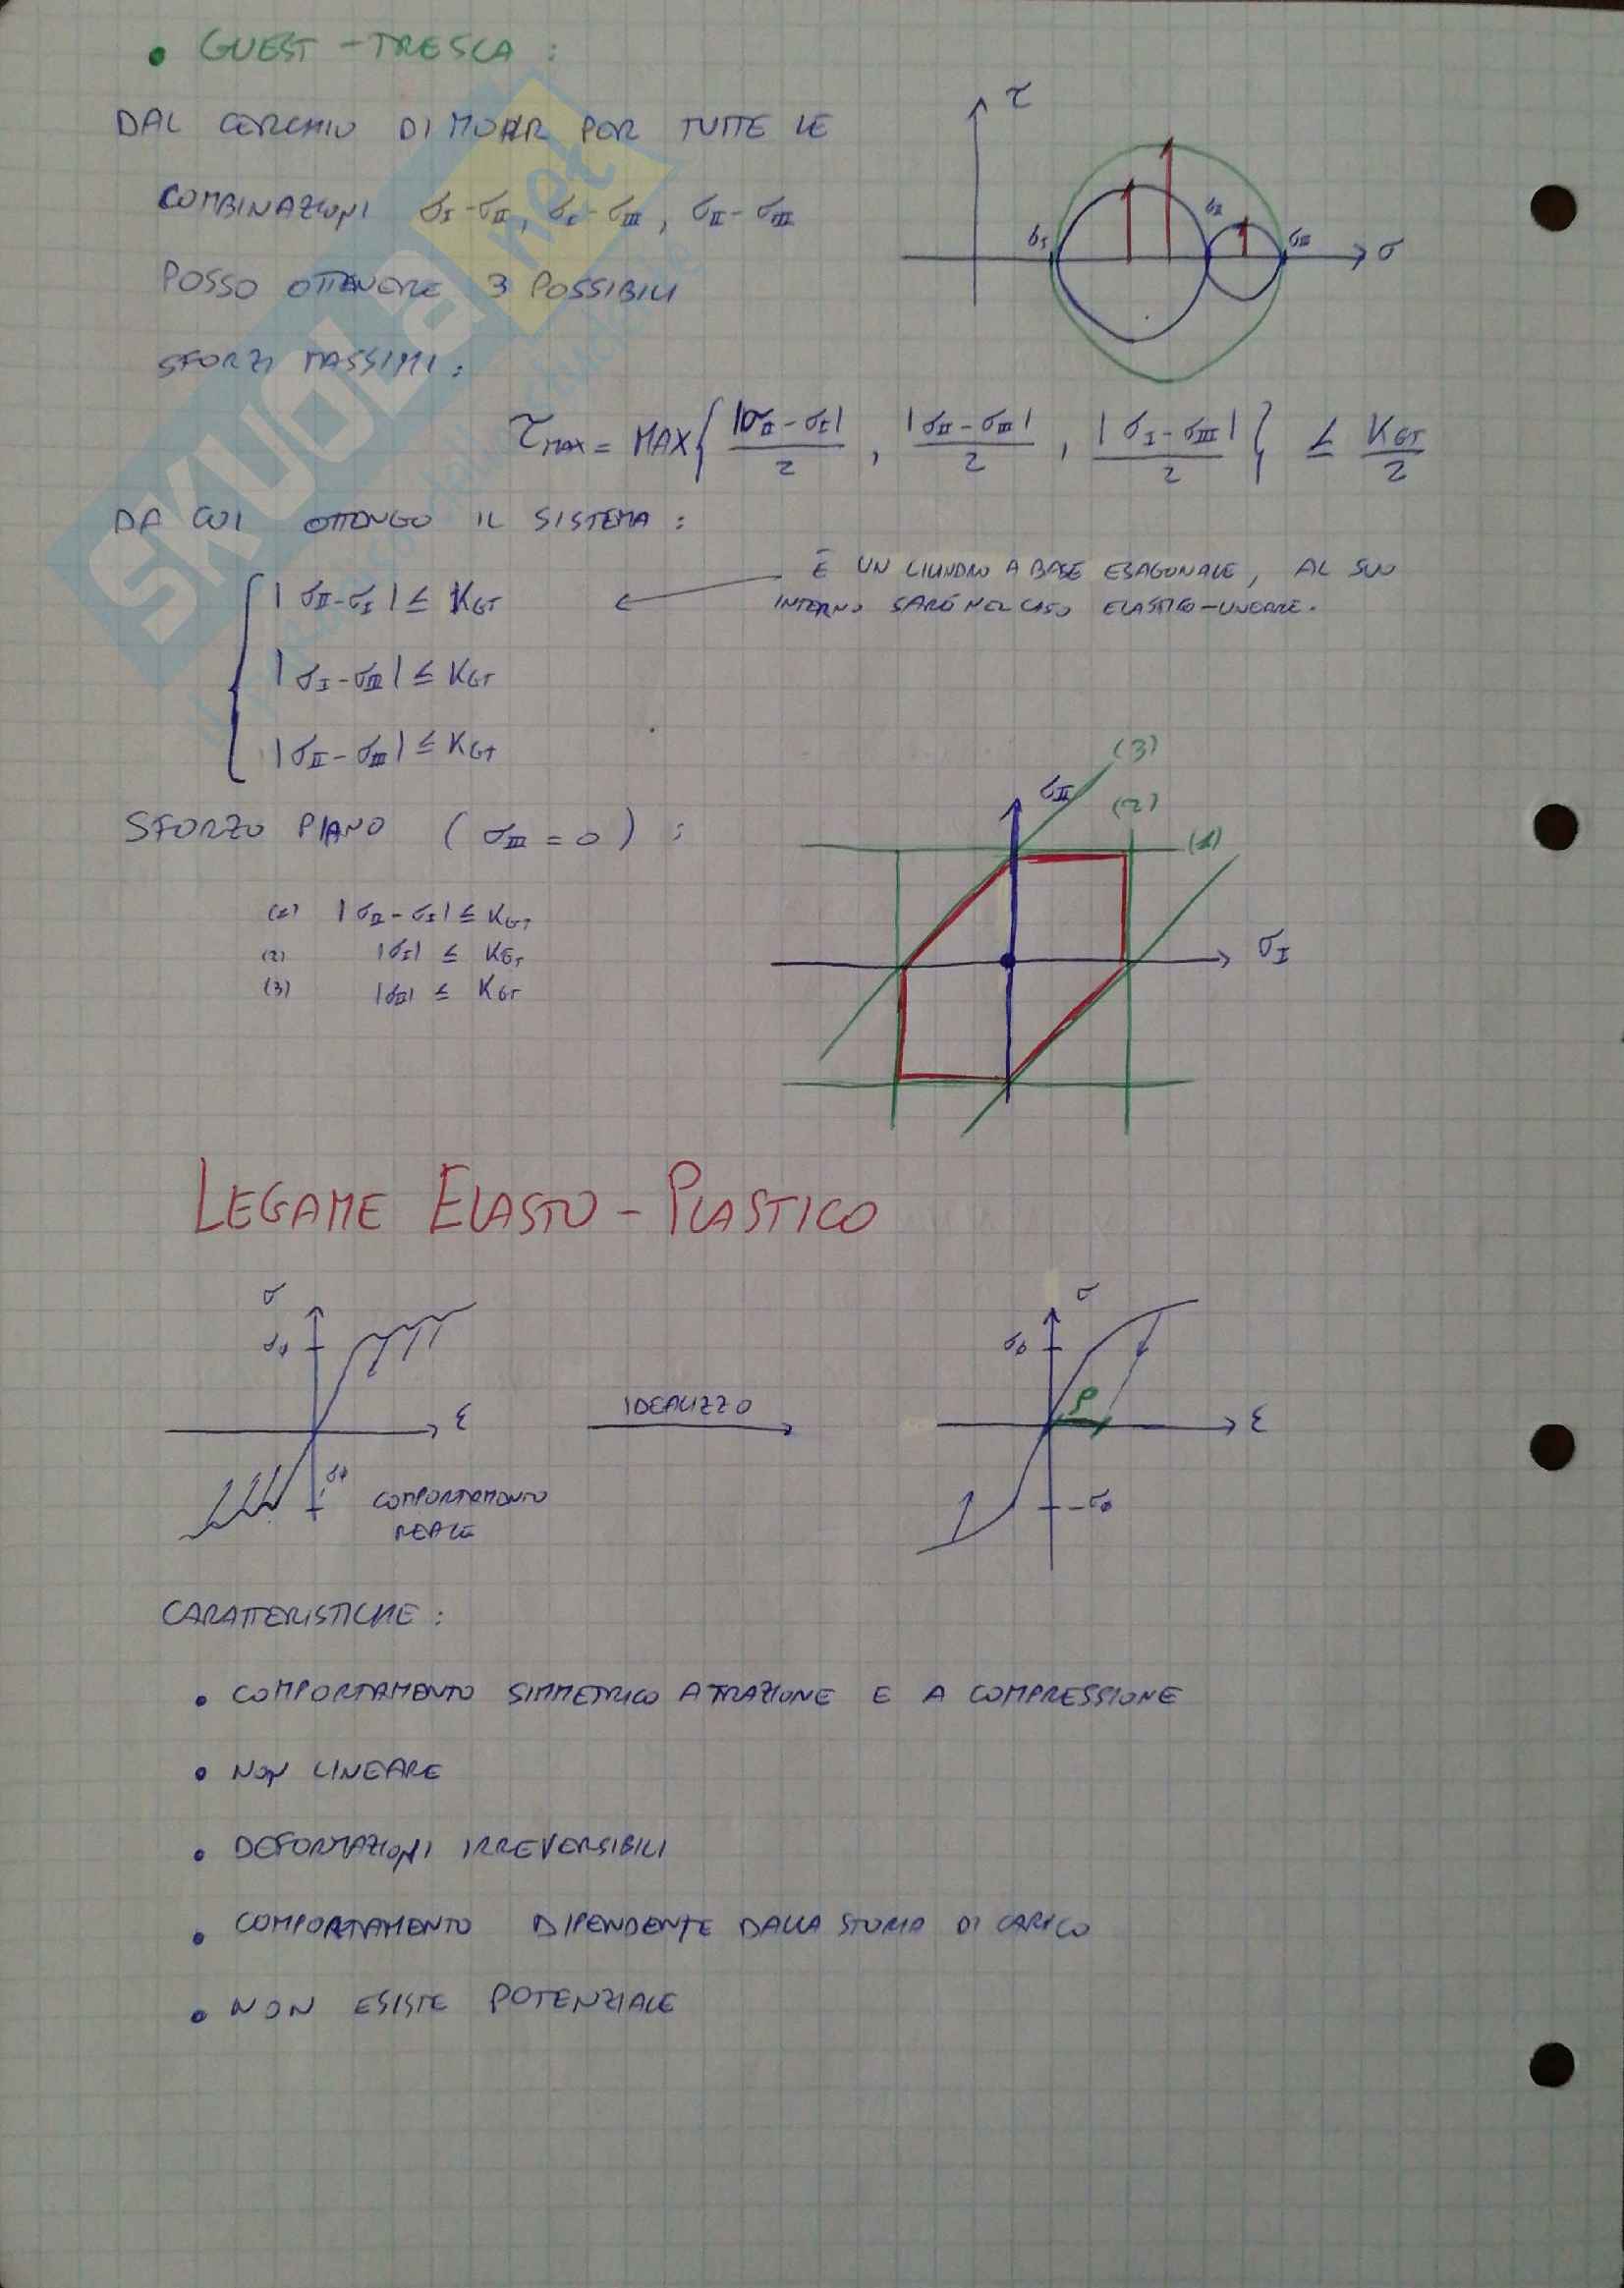 • GUEST - TRESCA :
DAL CERCHIO DI MOHR PER TUTTE LE
COMBINAZIONI σI-σII, σI-σIII, σII-σIII
POSSO OTTENERE 3 POSSIBILI
SFORZI MASSIMI :
τ
σI
σII
σIII
σ
τMAX = MAX{ |σII - σI| / 2 , |σII - σIII| / 2 , |σI - σIII| / 2 } ≤ KGT / 2
DA CUI OTTENGO IL SISTEMA :
È UN CILINDRO A BASE ESAGONALE, AL SUO
INTERNO SARÒ NEL CASO ELASTICO-LINEARE.
|σII-σI| ≤ KGT
|σI-σIII| ≤ KGT
|σII-σIII| ≤ KGT
SFORZO PIANO ( σIII = 0 ) :
(1) |σII - σI| ≤ KGT
(2) |σI| ≤ KGT
(3) |σII| ≤ KGT
σII
(3)
(2)
(1)
σI
LEGAME ELASTO - PLASTICO
σ
σ0
ε
σ0
COMPORTAMENTO
REALE
IDEALIZZO
σ
σ0
P
ε
-σ0
CARATTERISTICHE :
• COMPORTAMENTO SIMMETRICO A TRAZIONE E A COMPRESSIONE
• NON LINEARE
• DEFORMAZIONI IRREVERSIBILI
• COMPORTAMENTO DIPENDENTE DALLA STORIA DI CARICO
• NON ESISTE POTENZIALE
SKUOLA.net